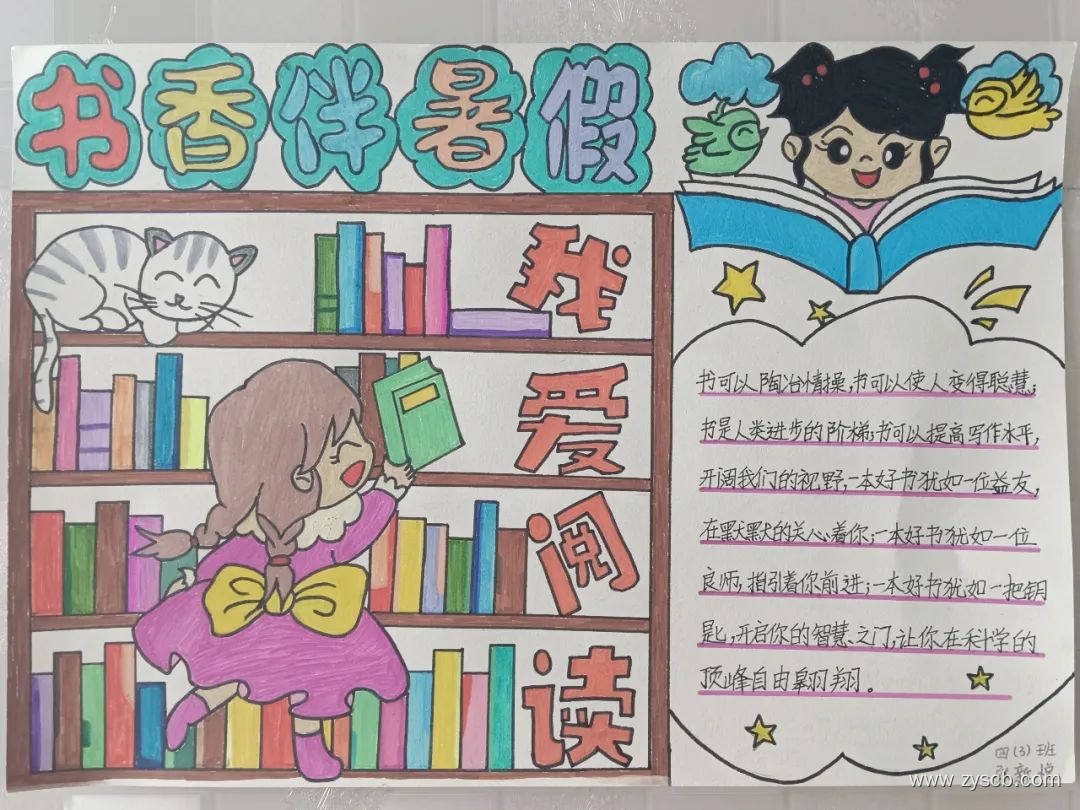 书香伴暑假
我爱阅读
书可以陶冶情操,书可以使人变得聪慧;
书是人类进步的阶梯;书可以提高写作水平,
开阔我们的视野,一本好书犹如一位益友,
在默默的关心着你;一本好书犹如一位
良师,指引着你前进;一本好书犹如一把钥
匙,开启你的智慧之门,让你在科学的
顶峰自由翱翔。
四(3)班
www.zyscb.com